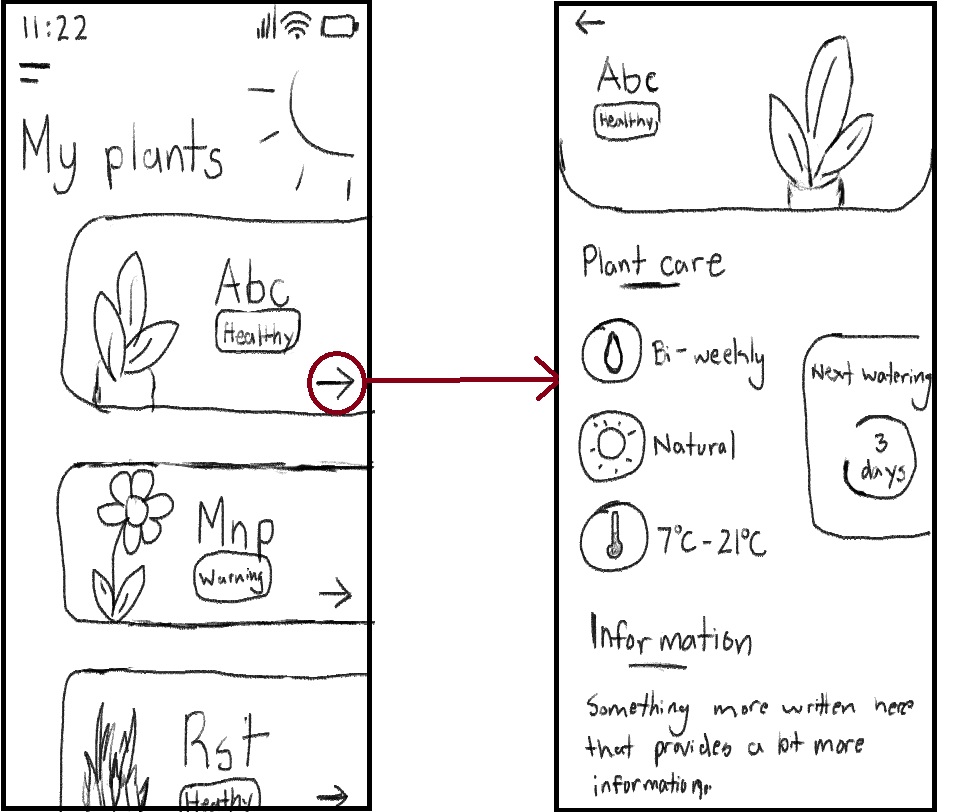 11:22
My plants
Abc
Healthy
Mnp
Warning
Rst
Healthy
Abc
Healthy
Plant care
Bi-weekly
Natural
7°C-21°C
Next watering
3
days
Information
Something more written here
that provides a bit more
information.